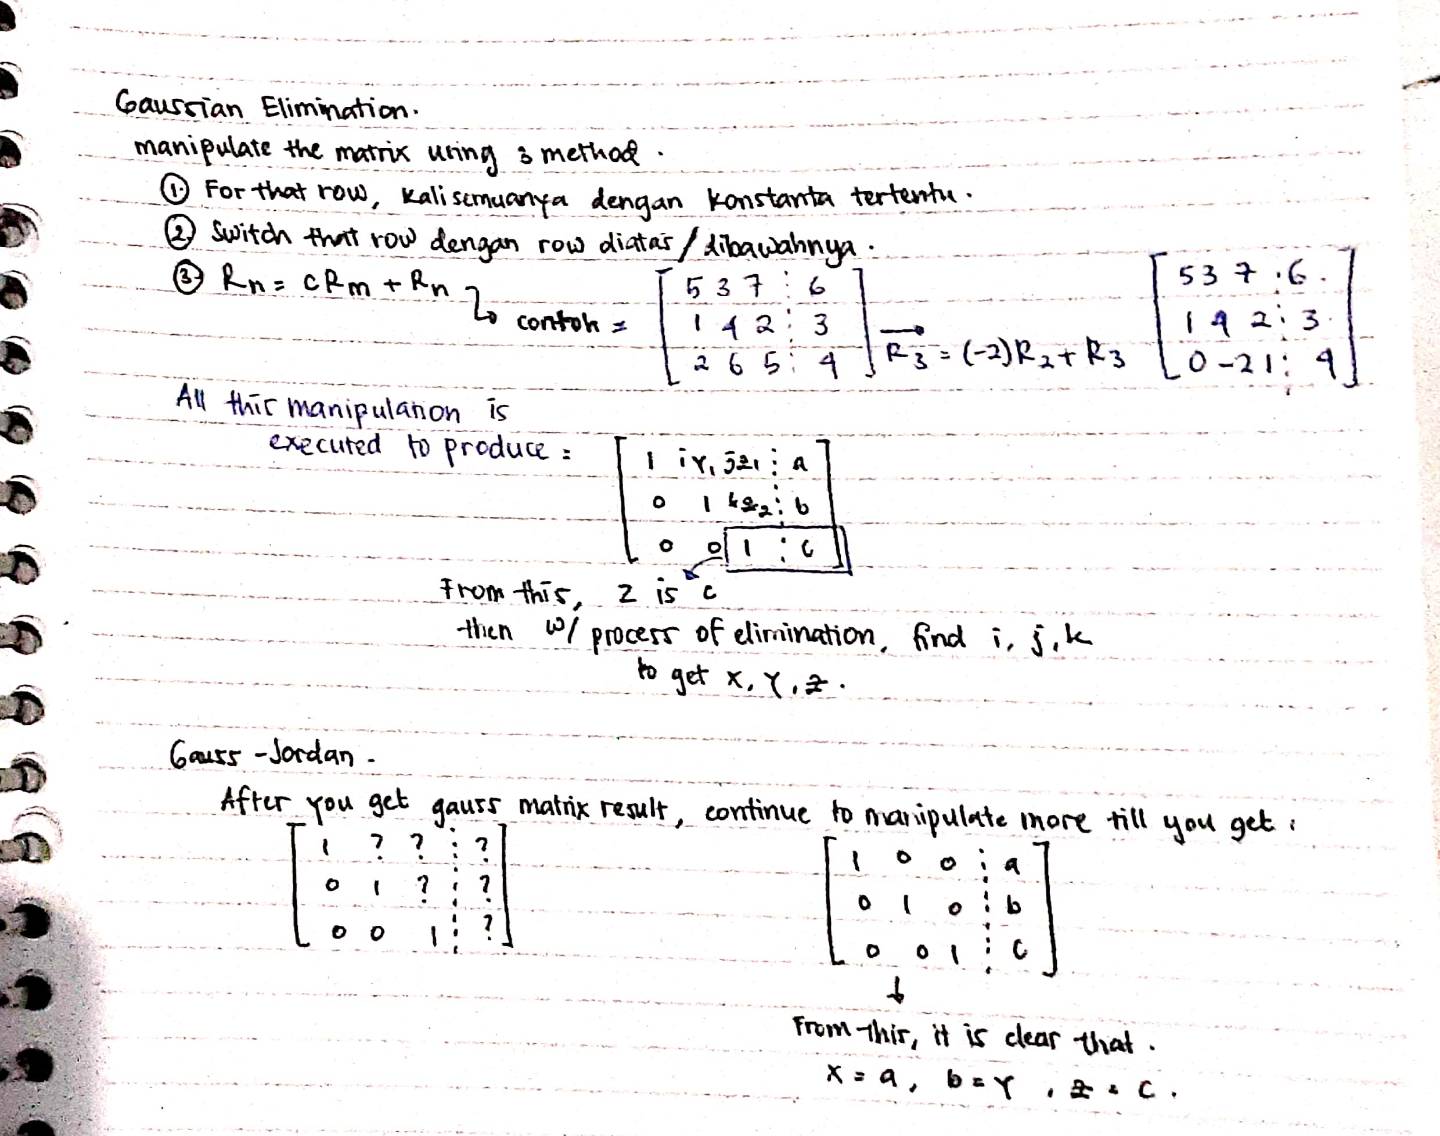 Gaussian Elimination.
manipulate the matrix using 3 method.
① For that row, kali semuanya dengan konstanta tertentu.
② Switch that row dengan row diatas / dibawahnya.
③ Rn = cRm + Rn
contoh =
[ 5 3 7 : 6 ]
[ 1 4 2 : 3 ]
[ 2 6 5 : 4 ]
R3 = (-2)R2 + R3
[ 5 3 7 : 6 ]
[ 1 4 2 : 3 ]
[ 0 -2 1 : 4 ]
All this manipulation is
executed to produce =
[ 1 iY1 jz1 : a ]
[ 0 1 kz2 : b ]
[ 0 0 1 : c ]
From this, z is c
then w/ process of elimination, find i, j, k
to get x, Y, z.
Gauss - Jordan.
After you get gauss matrix result, continue to manipulate more till you get :
[ 1 ? ? : ? ]
[ 0 1 ? : ? ]
[ 0 0 1 : ? ]
[ 1 0 0 : a ]
[ 0 1 0 : b ]
[ 0 0 1 : c ]
↓
From this, it is clear that.
x = a, b = Y, z = c.